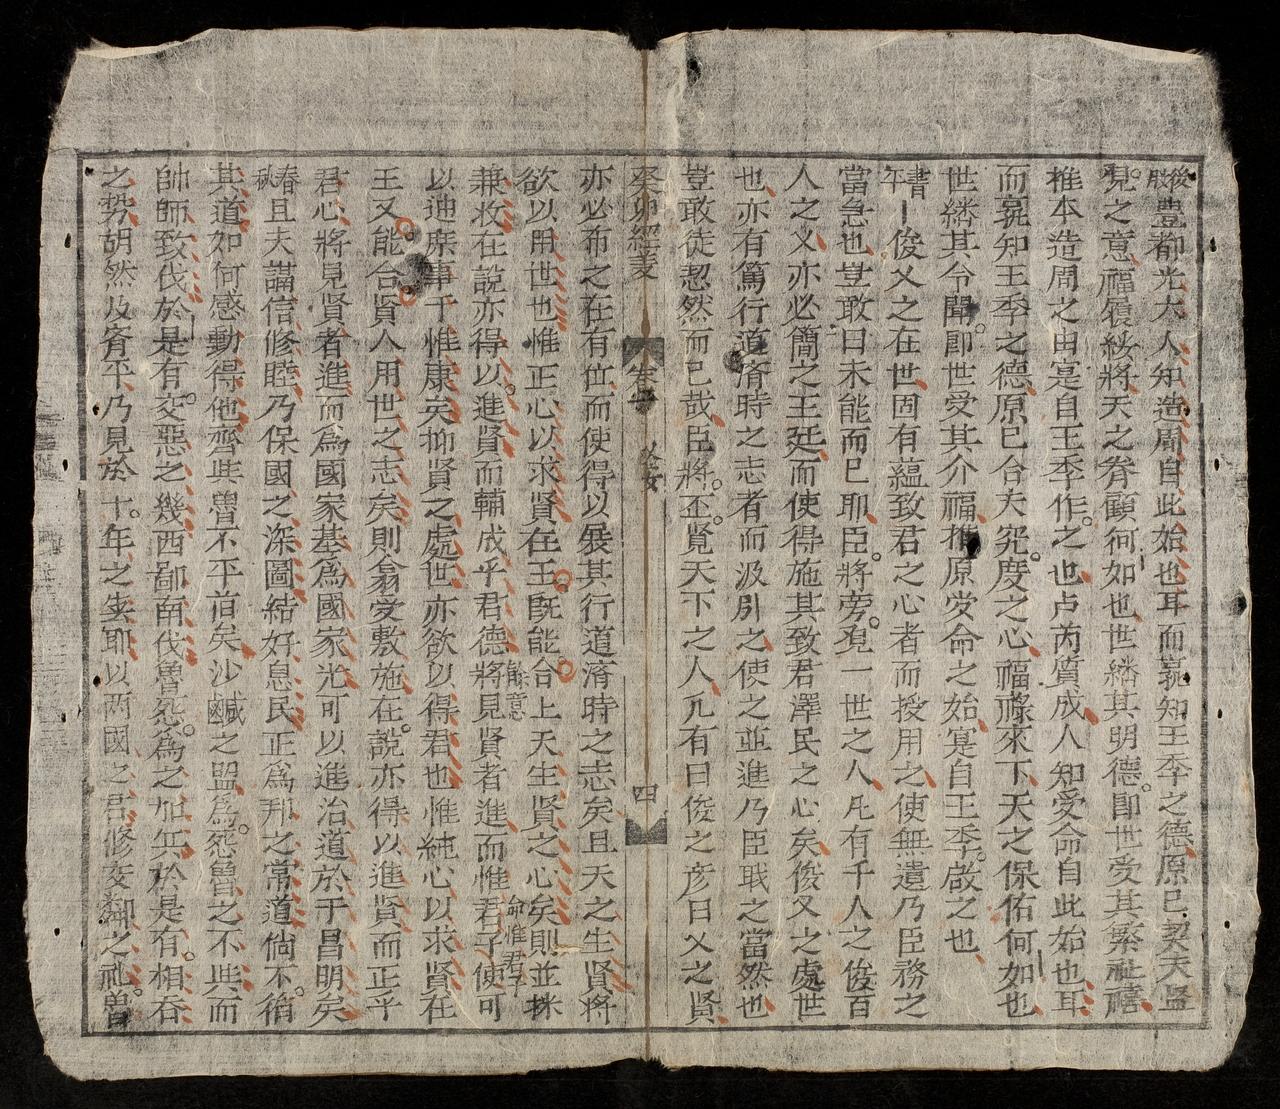 後股豊都光大人知造周自此始也耳而寔知王季之德原已契天監
見之意福履綏將天之眷顧何如也世綉其明德即世受其繁祉禧
推本造周之由寔自王季作之也占芮質成人知受命自此始也耳
而寔知王季之德原已合天究度之心福祿來下天之保佑何如也
世綉其令聞即世受其介福推原受命之始寔自王季啟之也
書年俊乂之在世固有蘊致君之心者而授用之使無遺乃臣務之
當急也豈敢曰未能而已耶臣將旁覓一世之人凡有千人之俊百
人之乂亦必簡之王廷而使得施其致君澤民之心矣俊乂之處世
也亦有篤行道濟時之志者而汲引之使之並進乃臣戢之當然也
豈敢徒恝然而已哉臣將丕覓天下之人凡有曰俊之彥曰乂之賢
癸卯經義 卷 四
亦必布之在有位而使得以展其行道濟時之志矣且天之生賢將
欲以用世也惟正心以求賢在王既能合上天生賢之心矣則並採
兼收在說亦得以進賢而輔成乎君德將見賢者進而惟君子使可
以迪庶事于惟康矣抑賢之處世亦欲以得君也惟純心以求賢在
王又能合賢人用世之志矣則翕受敷施在說亦得以進賢而正乎
君心將見賢者進而為國家基為國家光可以進治道於于昌明矣
春秋且夫講信修睦乃保國之深圖結好息民正為邦之常道倘不循
其道如何感動得他齊與魯不平舊矣沙鹹之盟為怨魯之不與而
帥師致伐於是有交惡之幾西鄙南伐魯怨為之加兵於是有相吞
之勢胡然及齊平乃見於十年之実耶以両國之君修交鄰之礼魯